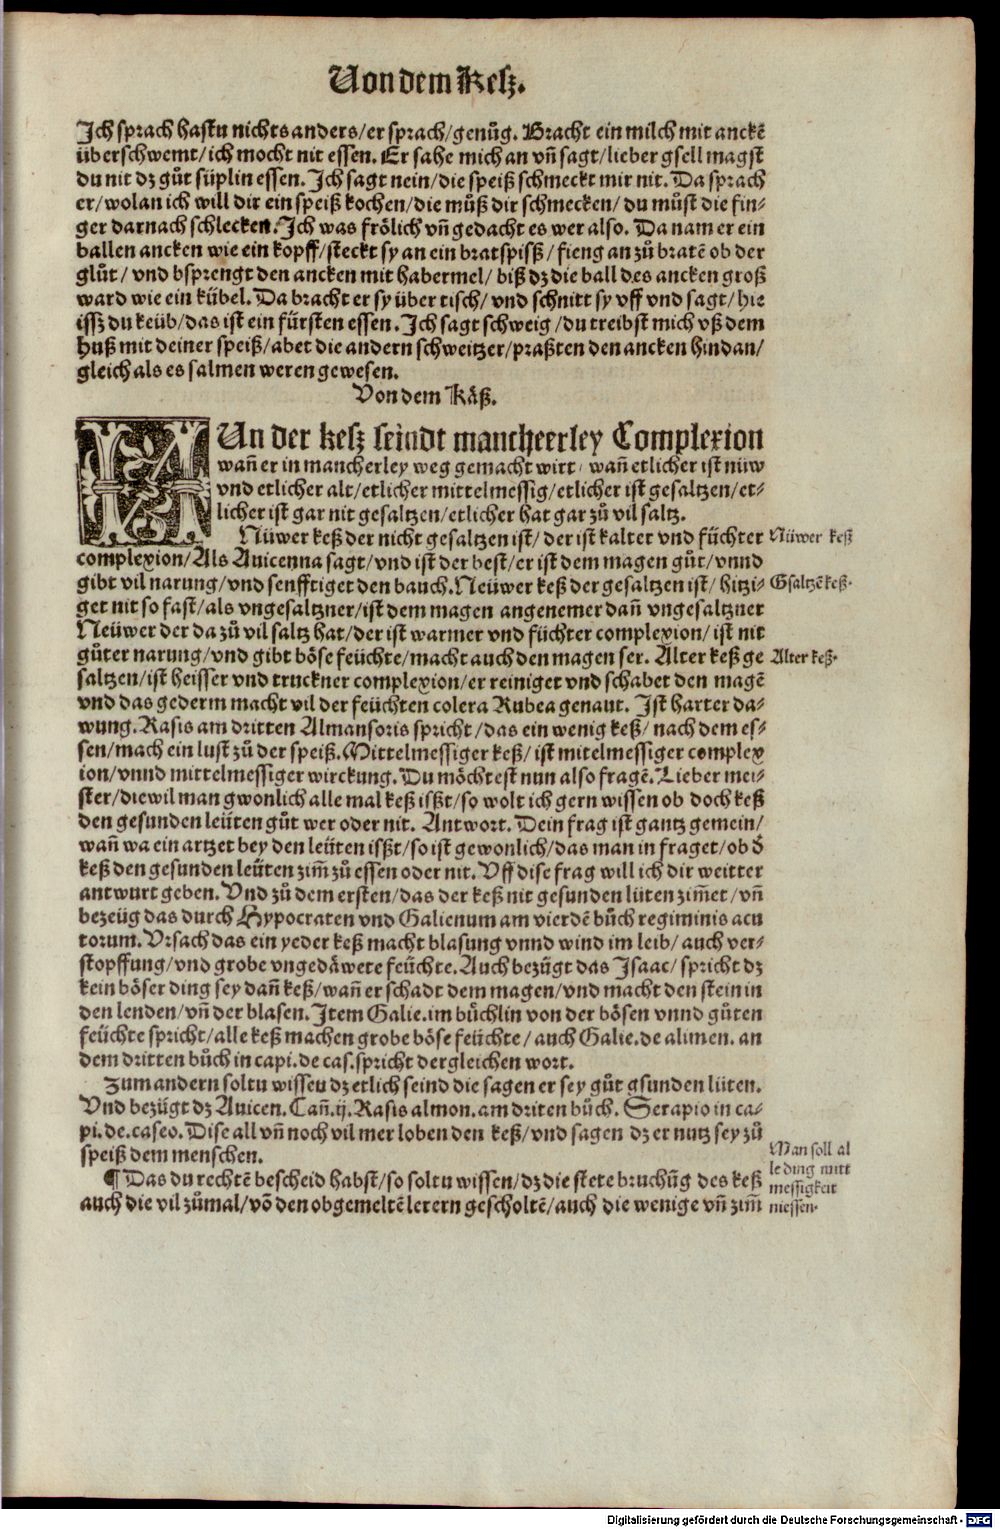 Von dem Kesz.
Ich sprach hastu nichts anders/er sprach/genůg. Bracht ein milch mit anckē
überschwemt/ich mocht nit essen. Er sahe mich an vñ sagt/lieber gsell magst
du nit dz gůt süplin essen. Ich sagt nein/die speiß schmeckt mir nit. Da sprach
er/wolan ich will dir ein speiß kochen/die můß dir schmecken/du můst die fin-
ger darnach schlecken. Ich was frölich vñ gedacht es wer also. Da nam er ein
ballen ancken wie ein kopff/steckt sy an ein bratspisß/fieng an zů bratē ob der
glůt/ vnd bsprengt den ancken mit habermel/ biß dz die ball des ancken groß
ward wie ein kübel. Da bracht er sy über tisch/ vnd schnitt sy vff vnd sagt/ hie
issz du keüb/das ist ein fürsten essen. Ich sagt schweig /du treibst mich vß dem
huß mit deiner speiß/abet die andern schweitzer/praßten den ancken hindan/
gleich als es salmen weren gewesen.
Von dem Käß.
NUn der kesz seindt mancheerley Complexion
wañ er in mancherley weg gemacht wirt/ wañ etlicher ist nüw
vnd etlicher alt/etlicher mittelmessig/etlicher ist gesaltzen/et-
licher ist gar nit gesaltzen/etlicher hat gar zů vil saltz.
Nüwer keß der nicht gesaltzen ist/ der ist kalter vnd füchter
Nüwer keß
complexion/Als Auicenna sagt/vnd ist der best/er ist dem magen gůt/vnnd
gibt vil narung/vnd senfftiget den bauch. Neüwer keß der gesaltzen ist/ hitzi-
Gsaltzē keß.
get nit so fast/als vngesaltzner/ist dem magen angenemer dañ vngesaltzner
Neüwer der da zů vil saltz hat/der ist warmer vnd füchter complexion/ ist nit
gůter narung/vnd gibt böse feüchte/macht auch den magen ser. Alter keß ge
Alter keß.
saltzen/ist heisser vnd truckner complexion/er reiniget vnd schabet den magē
vnd das gederm macht vil der feüchten colera Rubea genaut. Ist harter da-
wung. Rasis am dritten Almansoris spricht/das ein wenig keß/ nach dem es-
sen/mach ein lust zů der speiß. Mittelmessiger keß/ ist mitelmessiger complex
ion/vnnd mittelmessiger wirckung. Du möchtest nun also fragē. Lieber mei-
ster/diewil man gwonlich alle mal keß isßt/so wolt ich gern wissen ob doch keß
den gesunden leüten gůt wer oder nit. Antwort. Dein frag ist gantz gemein/
wañ wa ein artzet bey den leüten isßt/so ist gewonlich/das man in fraget/ob d̄
keß den gesunden leüten zim̄ zů essen oder nit. Vff dise frag will ich dir weitter
antwurt geben. Vnd zů dem ersten/das der keß nit gesunden lüten zim̄et/vñ
bezeüg das durch Hypocraten vnd Galienum am vierdē bůch regiminis acu
torum. Vrsach das ein yeder keß macht blasung vnnd wind im leib/ auch ver-
stopffung/vnd grobe vngedäwete feüchte. Auch bezügt das Isaac/ spricht dz
kein böser ding sey dañ keß/wañ er schadt dem magen/vnd macht den stein in
den lenden/vñ der blasen. Item Galie. im bůchlin von der bösen vnnd gůten
feüchte spricht/alle keß machen grobe böse feüchte/ auch Galie. de alimen. an
dem dritten bůch in capi. de cas. spricht dergleichen wort.
Zum andern soltu wissen dz etlich seind die sagen er sey gůt gsunden lüten.
Vnd bezügt dz Auicen. Cañ. ij. Rasis almon. am driten bůch. Serapio in ca-
pi. de. caseo. Dise all vñ noch vil mer loben den keß/vnd sagen dz er nutz sey zů
speiß dem menschen.
¶ Das du rechtē bescheid habst/so soltu wissen/dz die stete bruchūg des keß
auch die vil zůmal/vō den obgemeltē lerern gescholtē/auch die wenige vñ zim̄
Man soll al
le ding mitt
messigkeit
niessen.
Digitalisierung gefördert durch die Deutsche Forschungsgemeinschaft - DFG